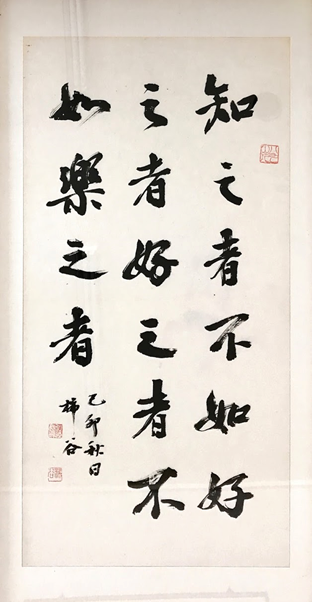 知之者不如好
之者好之者不
如樂之者
乙卯秋日
柿谷